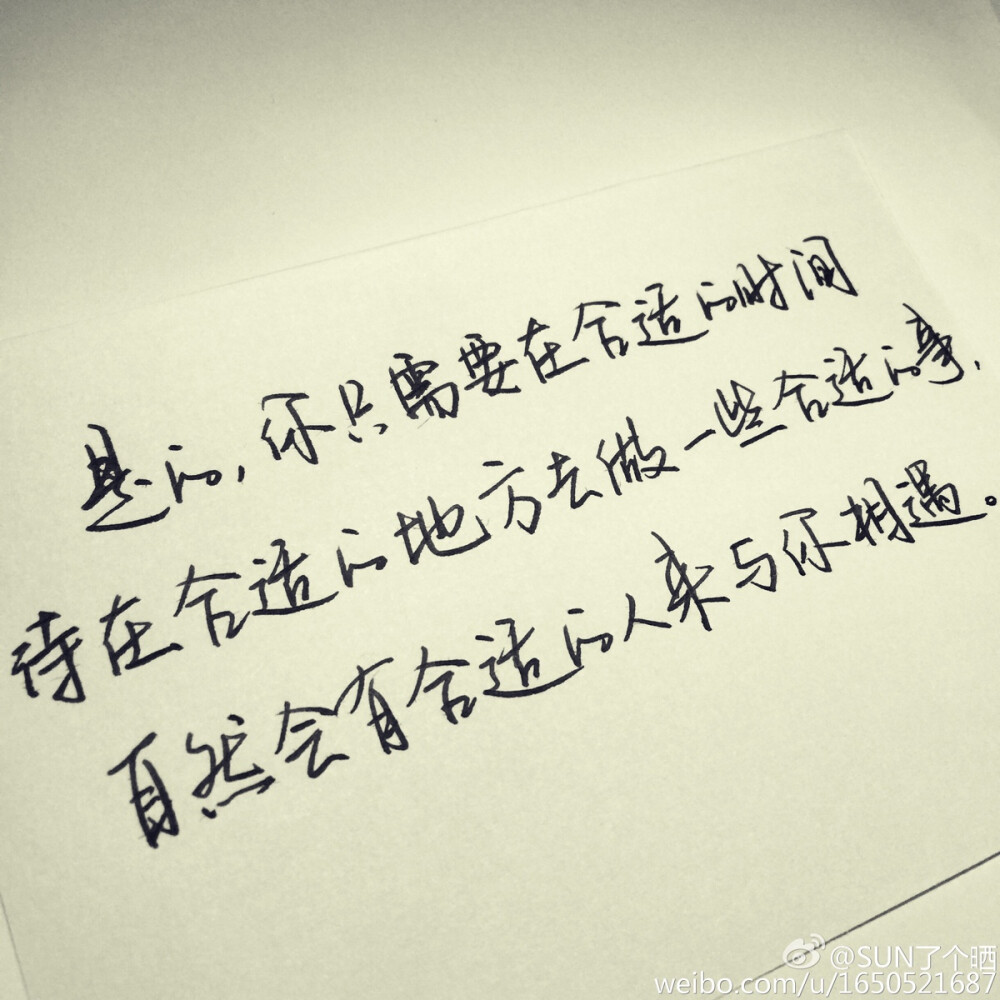 是的,你只需要在合适的时间
待在合适的地方去做一些合适的事,
自然会有合适的人来与你相遇。
@SUN了个晒
weibo.com/u/1650521687